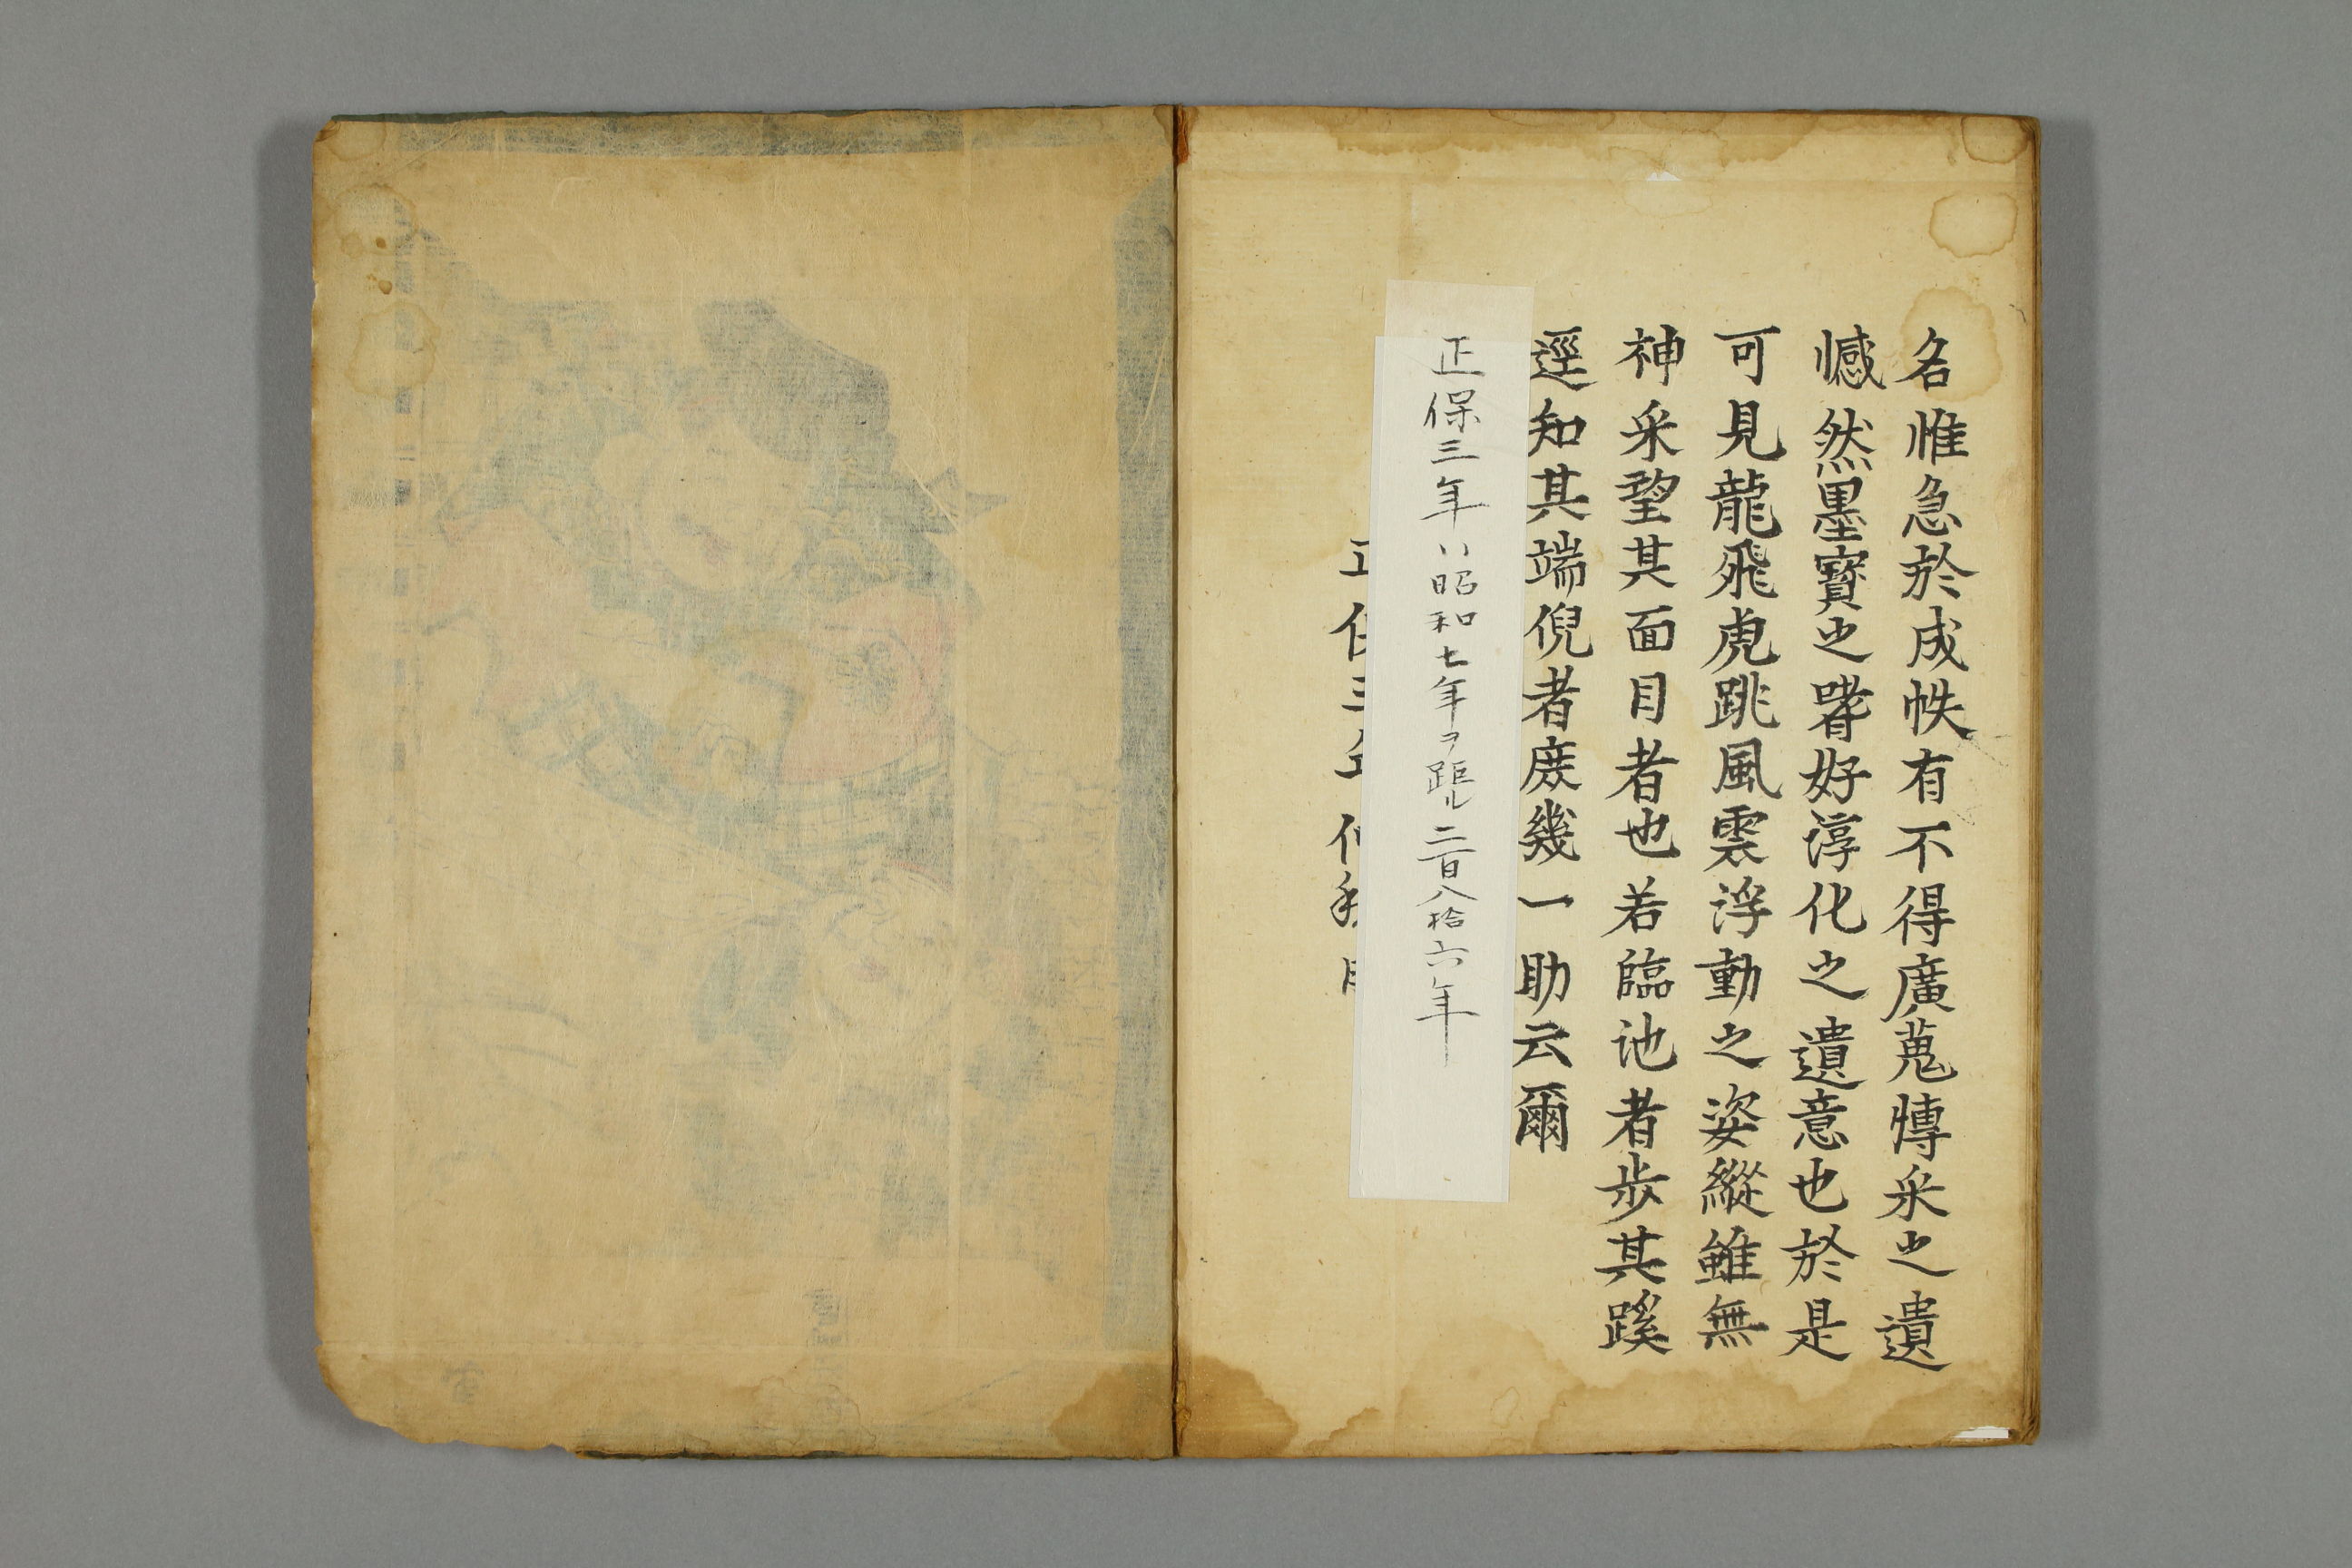 名惟急於成帙有不得廣蒐愽采之遺
憾然墨寶之嗜好淳化之遺意也於是
可見龍飛虎跳風雲浮動之姿縱雖無
神采望其面目者也若臨池者步其蹊
逕知其端倪者庶幾一助云爾
正保三年ハ昭和七年ヲ距ル二百八拾六年
三年仲秋